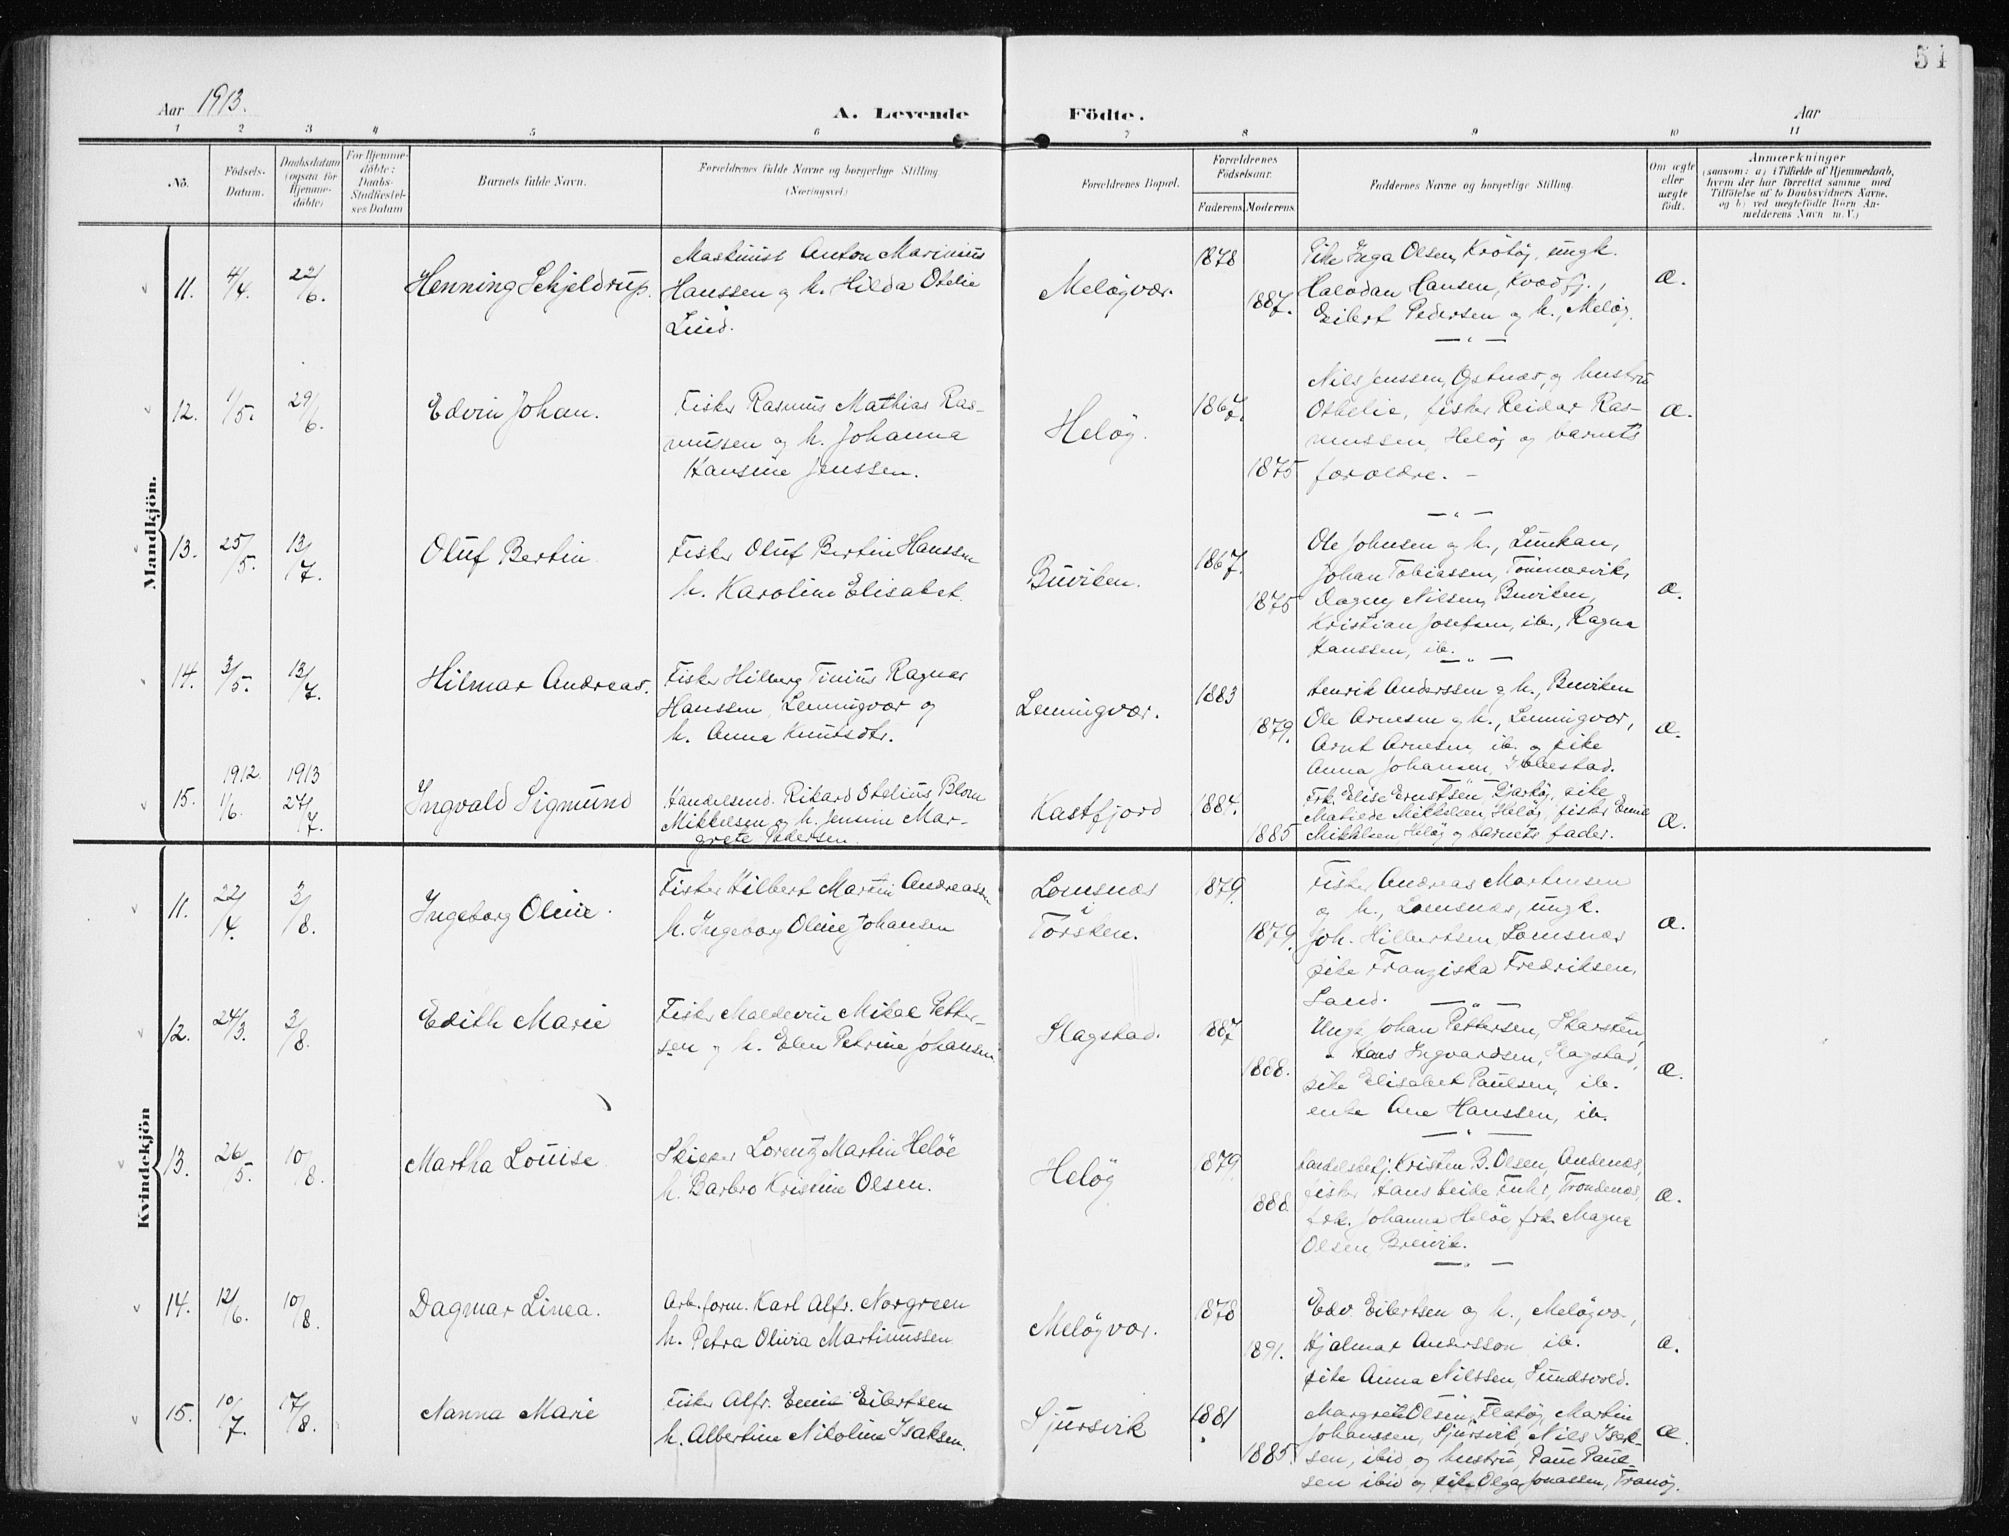 51
Aar 1913.
A. Levende Födte.
Aar
1 2 3 4 5 6 7 8 9 10 11
No.
Födsels-
Datum.
Daabsdatum
(ogsaa for
Hjemme-
döbte)
For Hjemme-
döbte:
Daabs-
Stadfæstel-
ses Datum
Barnets fulde Navn.
Forældrenes fulde Navne og borgerlige Stilling.
(Næringsvei.)
Forældrenes Bopæl.
Forældrenes
Födselsaar.
Faderens. Moderens.
Faddernes Navne og borgerlige Stilling.
Om ægte
eller
uægte
födt.
Anmærkninger
(saasom: a) i Tilfælde af Hjemmedaab,
hvem der har forrettet samme med
Tilföielse af to Daabsvidners Navne,
og b) ved uægtefödte Börn An-
melderens Navn m.V.)
Mandkjön.
11. 4/4. 22/6. Henning Schjeldrup.
Maskinist Anton Marinius
Hanssen og h. Hilda Otelie
Lind.
Meløyvær.
1878
1887.
Pike Inga Olsen, Krøtøy, ungk.
Halvdan Hansen, Kvædfj.,
Eilert Pedersen og h., Meløy.
æ.
— " —
12. 1/5. 29/6. Edvin Johan.
Fisker Rasmus Mathias Ras-
mussen og h. Johanna
Hansine Jenssen.
Heløy.
1867.
1875
Nils Jenssen, og hustru
Othelie, fisker Reidar Ras-
mussen, Heløy og barnets
forældre. —
æ.
— " —
13. 25/5. 13/7. Oluf Bertin.
Fisker Oluf Bertin Hanssen
h. Karoline Elisabet.
Buviken.
1867.
1875
Ole Johnsen og h., Lunkan,
Johan Tobiassen, Tømmervik,
Dagny Nilsen, Buviken,
Kristian Josefsen, ib., Ragna
Hanssen, ib.
æ.
— " —
14. 3/5. 13/7. Hilmar Andreas.
Fisker Hilberg Tinius Ragnar
Hanssen, Lemmingvær og
h. Anna Knutsdtr.
Lemmingvær.
1883
1879.
Henrik Anderssen og h., Buviken
Ole Arnesen og h., Lemmingvær,
Arnt Arnesen, ib. og pike
Anna Johansen,
æ.
15. 1912 1/6. 1913 27/7. Ingvald Sigmund
Handelsmd. Rikard Otelius Blom
Mikkelsen og h. Jensine Mar-
grete Pedersen.
Kastfjord
1884.
1885
Frk. Elise Ernstsen, Bjarkøy, pike
Matilde Mikkelsen, Heløy, fisker Emil
Mikkelsen Heløy og barnets fader.
æ.
Kvindekjön
11. 22/4. 3/8. Ingeborg Oline.
Fisker Hilbert Martin Andreassen
h. Ingeborg Oline Johansen
Lomsnæs
i
Torsken.
1879.
1879.
Fisker Andreas Martensen
og h., Lomsnæs, ungk.
Joh. Hilbertsen, Lomsnæs
pike Franziska Fredriksen,
Sand.
æ.
— " —
12. 24/3. 3/8. Edith Marie
Fisker Maldevin Mikal Petter-
sen og h. Elen Petrine Johansen
Hagstad.
1887
1888.
Ungk. Johan Pettersen, Skarsten,
" Hans Ingvardsen, Hagstad,
pike Elisabet Paulsen, ib.
enke Ane Hanssen, ib.
æ.
— " —
13. 26/5. 10/8. Martha Louise.
Skipper Lorentz Martin Heløe
h. Barbro Kristine Olsen.
Heløy
1879.
1888.
Handelsbetj. Kristen B. Olsen, Andenæs,
fisker Hans Trondenæs,
frk. Johanna Heløe, frk. Magna
Olsen, Breivik.
æ.
— " —
14. 12/6. 10/8. Dagmar Linea.
Arb.form. Karl Alfr. Norgreen
h. Petra Olivia Martinussen
Meløyvær.
1878
1891.
Edv. Eilertsen og h., Meløyvæ.,
Hjalmar Andersson, ib.
pike Anna Nilssen, Sundsvold.
æ.
15. 10/7. 17/8. Nanna Marie
Fisker Alfr. Emil Eilertsen
h. Albertine Nikoline Isaksen.
Sjursvik
1881.
1885.
Margrete Olsen, Flatøy, Martin
Johanssen, Sjursvik, Nils Isak-
sen, ibid. og hustru, Paul Paul-
sen ibid og pike Olga Jonassen, Tranøy.
æ.